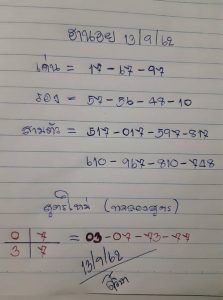 ฮานอย 13/9/62
เด่น = 17-67-97
รอง = 57-56-48-10
สามตัว = 517-017-597-817
610-967-810-748
สูตรใหม่ (ทดลองสูตร)
0 7 = 03-07-73-77
3 7
13/9/62